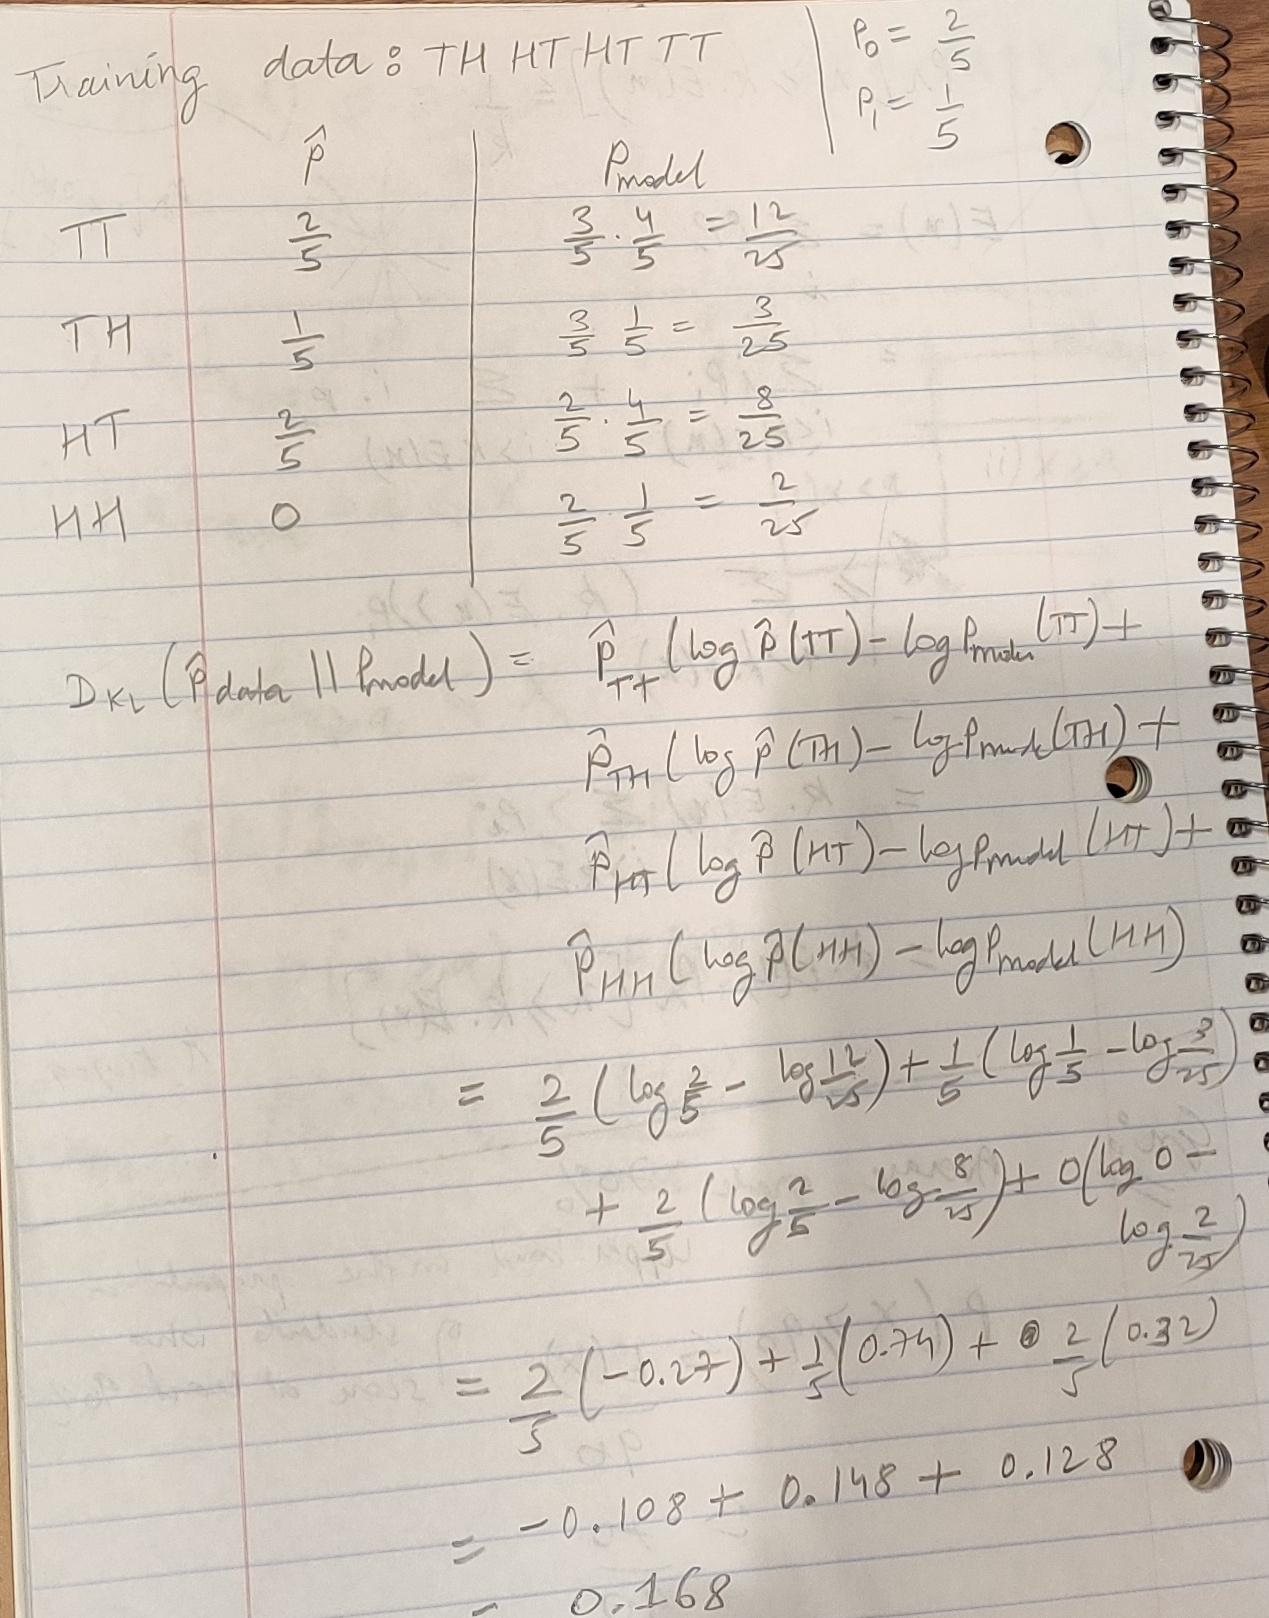 Training data : TH HT HT TT | P₀ = 2/5
P₁ = 1/5
p̂ | Pmodel
TT 2/5 | 3/5 · 4/5 = 12/25
TH 1/5 | 3/5 1/5 = 3/25
HT 2/5 | 2/5 · 4/5 = 8/25
HH 0 | 2/5 · 1/5 = 2/25
D_KL (p̂data || Pmodel) = p̂_TT (log p̂(TT) - log Pmodel (TT) +
p̂_TH (log p̂(TH) - log Pmodel (TH) +
p̂_HT (log p̂(HT) - log Pmodel (HT) +
p̂_HH (log p̂(HH) - log Pmodel (HH)
= 2/5 (log 2/5 - log 12/25) + 1/5 (log 1/5 - log 3/25)
+ 2/5 (log 2/5 - log 8/25) + 0(log 0 -
log 2/25)
= 2/5 (-0.27) + 1/5 (0.74) + 2/5 (0.32)
= -0.108 + 0.148 + 0.128
= 0.168